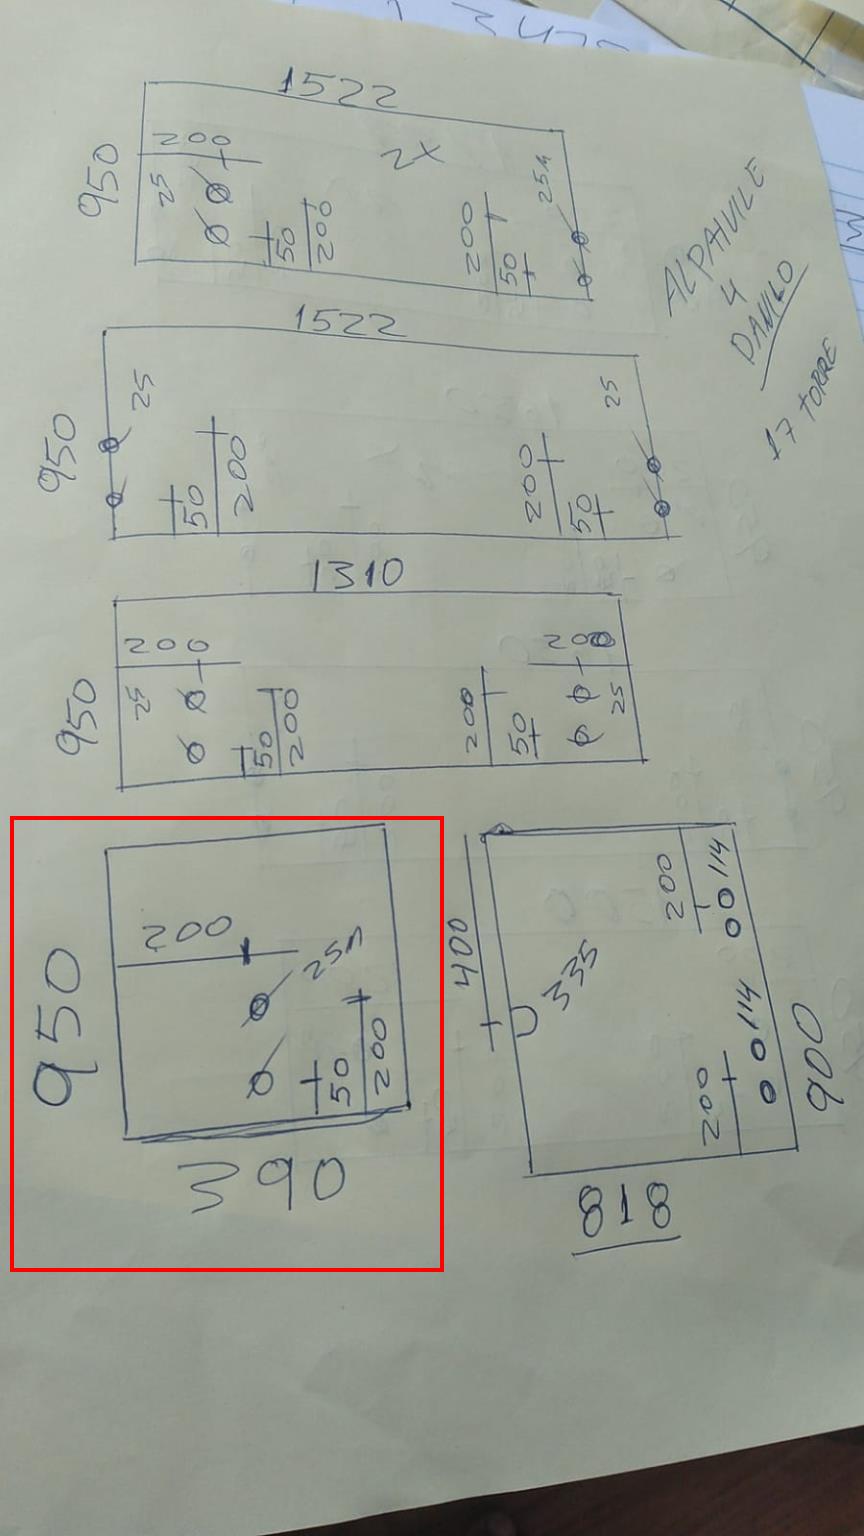 1522
950
200
2X
25
50
200
200
50
25n
ALPAIVILE
4
DANILO
17 TORRE
1522
950
25
25
50
200
200
50
1310
950
200
200
25
50
200
200
50
25
950
200
25n
50
200
390
400
335
200
114
114
200
900
818